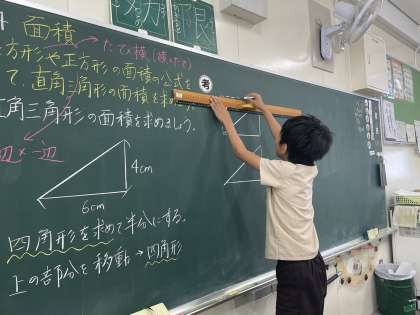 面積
たて×横(横×たて)
方形や正方形の面積の公式を
て、直角三角形の面積を求め
考
角三角形の面積を求めましょう。
辺×一辺
4cm
6cm
四角形を求めて半分にする。
上の部分を移動→四角形